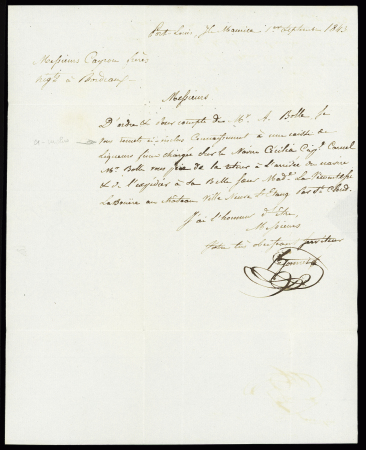 Port Louis, Ile Maurice 1er Septembre 1843
Messieurs Cayrou frères
Negts à Bordeaux
Messieurs
D'ordre et pour compte de Mr. A. Bolle, je
vous remets ci-inclus Connaissement à une caisse de
liqueurs fines chargée sur le Navire Cécilia Capne
Mr. Bolle vous prie de la retirer à l'arrivée du navire
et de l'expédier à sa Belle Sœur Made. La
au Château Ville Neuve l'Etang Par St. Cloud.
J'ai l'honneur d'être
Messieurs
Votre très obéissant serviteur